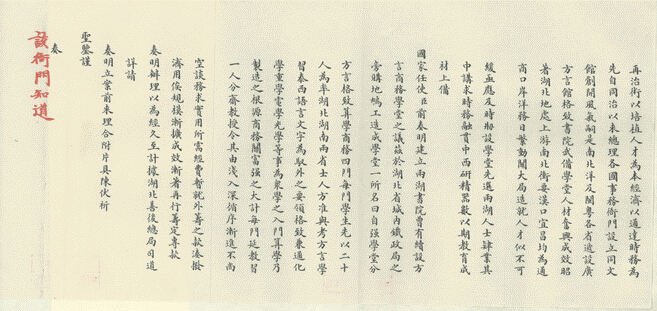 再治術以培植人才為本經濟以通達時務為
先自同治以來總理各國事務衙門設立同文
館創開風氣嗣是南北洋及閩粵各省遞設廣
方言館格致書院武備學堂人材奮興成效昭
著湖北地處上游南北衝要漢口宜昌均為通
商口岸洋務日繁動關大局造就人才似不可
緩亟應及時剏設學堂先選兩湖人士肄業其
中講求時務融貫中西研精器數以期教育成
材上備
國家任使臣前奏明建立兩湖書院曾有續設方
言商務學堂之議茲於湖北省城內鐵政局之
旁購地鳩工造成學堂一所名曰自强學堂分
方言格致算學商務四門每門學生先以二十
人為率湖北湖南兩省士人方准與考方言學
習泰西語言文字為馭外之要領格致兼通化
學重學電學光學等事為衆學之入門算學乃
製造之根源商務關富强之大計每門延教習
一人分齋教授令其由淺入深循序漸進不尚
空談務求實用所需經費暫就外籌之款湊撥
濟用俟規模漸擴成效漸著再行籌定專款
奏明辦理以為經久至計據湖北善後總局司道
詳請
奏明立案前來理合附片具陳伏祈
聖鑒謹
奏
該衙門知道